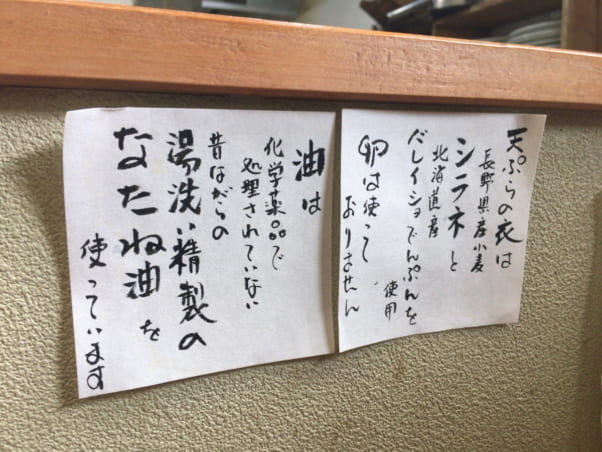 天ぷらの衣は
長野県産小麦
シラネと
北海道産
バレイショでんぷんを
使用
卵は使って
おりません
油は
化学薬品で
処理されていない
昔ながらの
湯洗い精製の
なたね油を
使っています